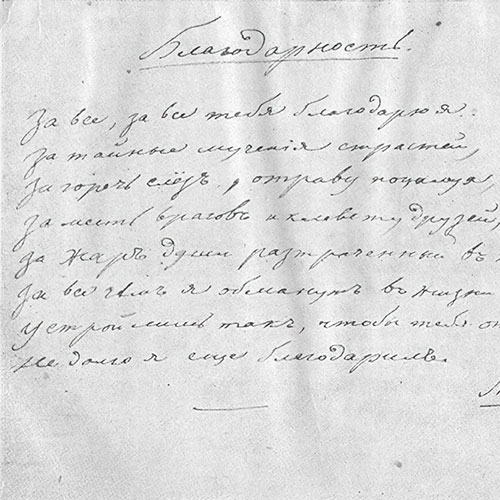 Благодарность.
За все, за все тебя благодарю я:
За тайные мученія страстей,
За горечь слёзъ, отраву поцалуя,
За месть враговъ и клевету друзей,
За жаръ души растраченный въ
За все чѣмъ я обманутъ въ жизни
Устрой лишь такъ, чтобы тебя
Не долго я еще благодарилъ.